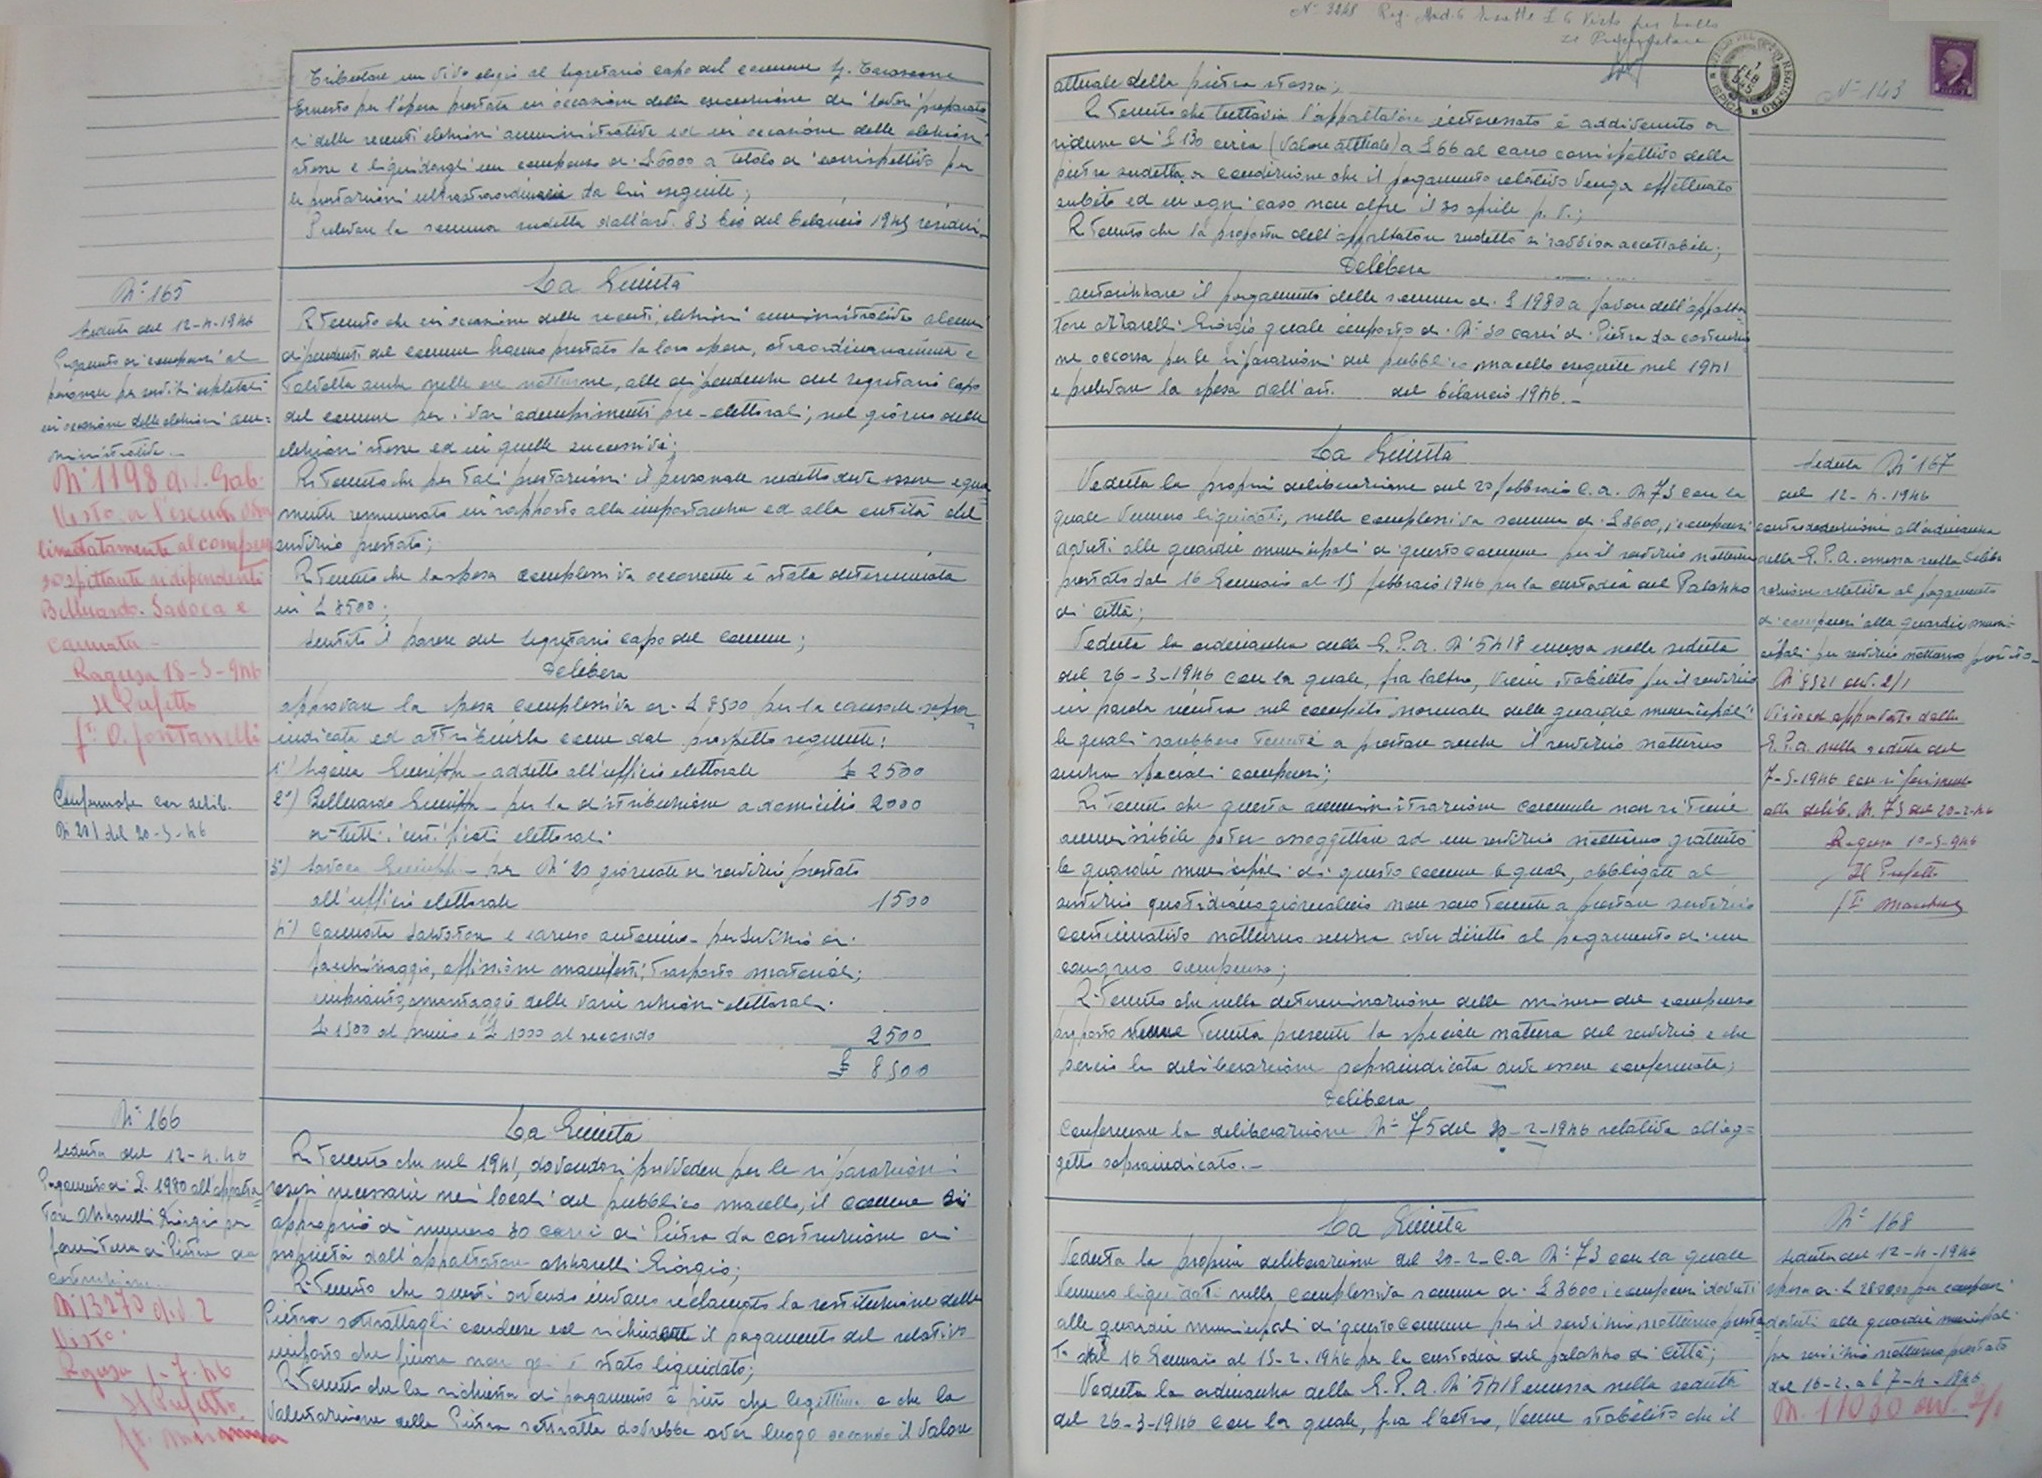 Tributare un vivo elogio al Segretario capo del comune
Ernesto per l'opera prestata in occasione della esecuzione dei lavori preparato
ri delle recenti elezioni amministrative ed in occasione delle elezioni
stesse e liquidargli un compenso di £ 6000 a titolo di corrispettivo per
le prestazioni ultrastraordinarie da lui eseguite;
Prelevare la somma sudetta dall'art. 83 bis del bilancio 1945 residui.
N° 165
Seduta del 12-4-1946
Pagamento di compensi al
personale per servizi espletati
in occasione delle elezioni am=
ministrative.
N° 1198 div. Gab.
Visto
limitatamente al compen
so spettante ai dipendenti
Belluardo - Savoca e
Cannata -
Ragusa 18-5-946
Il Prefetto
f.to O. Fontanelli
Confermata con delib.
N 201 del 20-5-46
La Giunta
Ritenuto che in occasione delle recenti elezioni amministrative alcuni
dipendenti del comune hanno prestato la loro opera, straordinariamente e
talvolta anche nelle ore notturne, alle dipendenze del segretario capo
del comune per i vari adempimenti pre-elettorali, nel giorno delle
elezioni stesse ed in quelle successive;
Ritenuto che per tali prestazioni il personale sudetto deve essere equa
mente remunerato in rapporto alla importanza ed alla entità del
servizio prestato;
Ritenuto che la spesa complessiva occorrente è stata determinata
in £ 8500;
Sentito il parere del Segretario capo del comune;
Delibera
approvare la spesa complessiva di £ 8500 per la causale sopra=
indicata ed attribuirla come dal prospetto seguente:
1°) Giuseppe - addetto all'ufficio elettorale £ 2500
2°) Belluardo Giuseppe - per la distribuzione a domicilio 2000
di tutti i certificati elettorali
3°) Savoca Giuseppe - per N° 20 giornate di servizio prestato
all'ufficio elettorale 1500
4°) Cannata Salvatore e Caruso Antonino - per servizio di
facchinaggio, affissione manifesti, trasporto materiali,
impianti, montaggio delle varie sezioni elettorali
£ 1500 al primo e £ 1000 al secondo 2500
£ 8500
N° 166
Seduta del 12-4-46
Pagamento di £. 1980 all'appalta
tore Azzarelli Giorgio per
fornitura di Pietra da
costruzione
N° 13270 div. 2
Visto
Ragusa 1-7-46
Il Prefetto
La Giunta
Ritenuto che nel 1941, dovendosi provvedere per le riparazioni
resesi necessarie nei locali del pubblico macello, il comune si
appropriò di numero 30 carri di Pietra da costruzione di
proprietà dell'appaltatore Azzarelli Giorgio;
Ritenuto che questi avendo invano reclamato la restituzione della
Pietra sottrattagli ebbe a richiedere il pagamento del relativo
importo che finora non gli è stato liquidato;
Ritenuto che la richiesta di pagamento è più che legittima e che la
valutazione della Pietra sottratta dovrebbe aver luogo secondo il valore
N° 143
attuale della pietra stessa;
Ritenuto che tuttavia l'appaltatore interessato è addivenuto a
ridurre di £ 130 circa (valore attuale) a £ 66 al carro corrispettivo della
pietra sudetta a condizione che il pagamento relativo venga effettuato
subito ed in ogni caso non oltre il 30 aprile p. v.;
Ritenuto che la proposta dell'appaltatore sudetto si ravvisa accettabile;
Delibera
autorizzare il pagamento della somma di £ 1980 a favore dell'appalta
tore Azzarelli Giorgio quale importo di N° 30 carri di Pietra da costruzio
ne occorsa per le riparazioni del pubblico macello eseguite nel 1941
e prelevare la spesa dall'art. del bilancio 1946.
La Giunta
Veduta la propria deliberazione del 20 febbraio c.a. N 73 con la
quale vennero liquidati, nella complessiva somma di £ 3600, i compensi
dovuti alle guardie municipali di questo comune per il servizio notturno
prestato dal 16 Gennaio al 15 febbraio 1946 per la custodia del Palazzo
di città;
Veduta la ordinanza della G.P.A. N° 5418 emessa nella seduta
del 26-3-1946 con la quale, fra l'altro, viene stabilito che il servizio
in parola rientra nel compito normale delle guardie municipali
le quali sarebbero tenute a prestare anche il servizio notturno
senza speciali compensi;
Ritenuto che questa amministrazione comunale non ritiene
ammissibile poter assoggettare ad un servizio notturno gratuito
le guardie municipali di questo comune le quali, obbligate al
servizio quotidiano giornaliero non sono tenute a prestare servizio
continuativo notturno senza aver diritto al pagamento di un
congruo compenso;
Ritenuto che nella determinazione della misura del compenso
tenuta presente la speciale natura del servizio e che
perciò la deliberazione sopraindicata deve essere confermata;
Delibera
Confermare la deliberazione N° 75 del 20-2-1946 relativa all'og=
getto sopraindicato.
Seduta N° 167
del 12-4-1946
controdeduzioni all'ordinanza
della G.P.A. emessa sulla delibe
razione relativa al pagamento
di compensi alle guardie muni=
cipali per servizio notturno
N° 8321 div. 2/1
Visto ed approvato dalla
G.P.A. nella seduta del
7-5-1946 con riferimento
alla delib. N. 73 del 20-2-46
Ragusa 10-5-946
Il Prefetto
La Giunta
Veduta la propria deliberazione del 20-2-c.a N° 73 con la quale
vennero liquidati nella complessiva somma di £ 3600 i compensi dovuti
alle guardie municipali di questo comune per il servizio notturno presta
to dal 16 Gennaio al 15-2-1946 per la custodia del palazzo di città;
Veduta la ordinanza della G.P.A. N° 5418 emessa nella seduta
del 26-3-1946 con la quale, fra l'altro, venne stabilito che il
N° 168
Seduta del 12-4-1946
spesa di £ per compensi
dovuti alle guardie municipali
per servizio notturno prestato
dal 16-2 al 7-4-1946